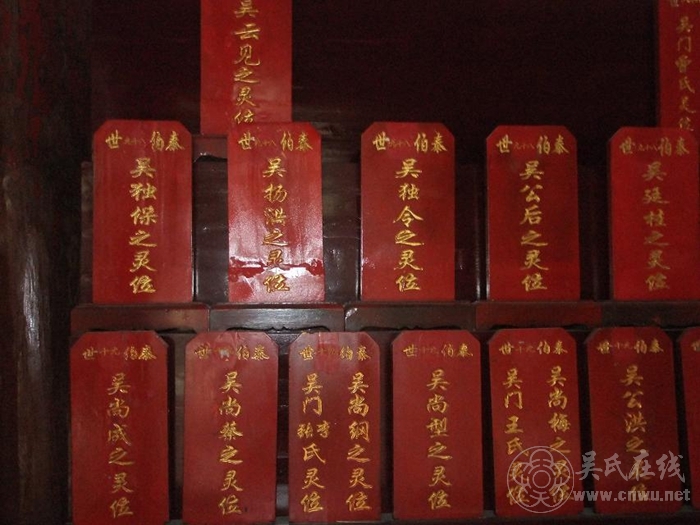 吴云见之灵位
泰伯八十九世
吴独保之灵位
泰伯八十九世
吴扬洪之灵位
泰伯八十九世
吴独令之灵位
泰伯八十九世
吴公后之灵位
泰伯八十九世
吴廷桂之灵位
吴门氏灵位
泰伯九十世
吴尚成之灵位
泰伯九十世
吴尚蔡之灵位
泰伯九十世
吴尚纲之灵位
吴门李氏灵位
泰伯九十世
吴尚型之灵位
泰伯九十世
吴尚梅之灵位
吴门王氏灵位
泰伯九十世
吴公洪之灵位
吴氏在线
www.cnwu.net